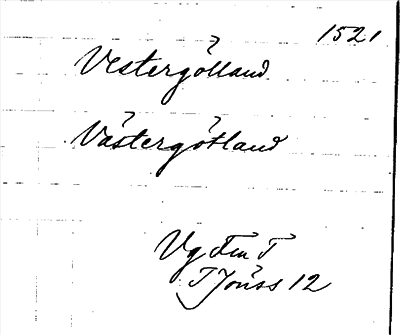 1521
Vestergölland
Västergötland
Vg Fru T
T Jöüss 12